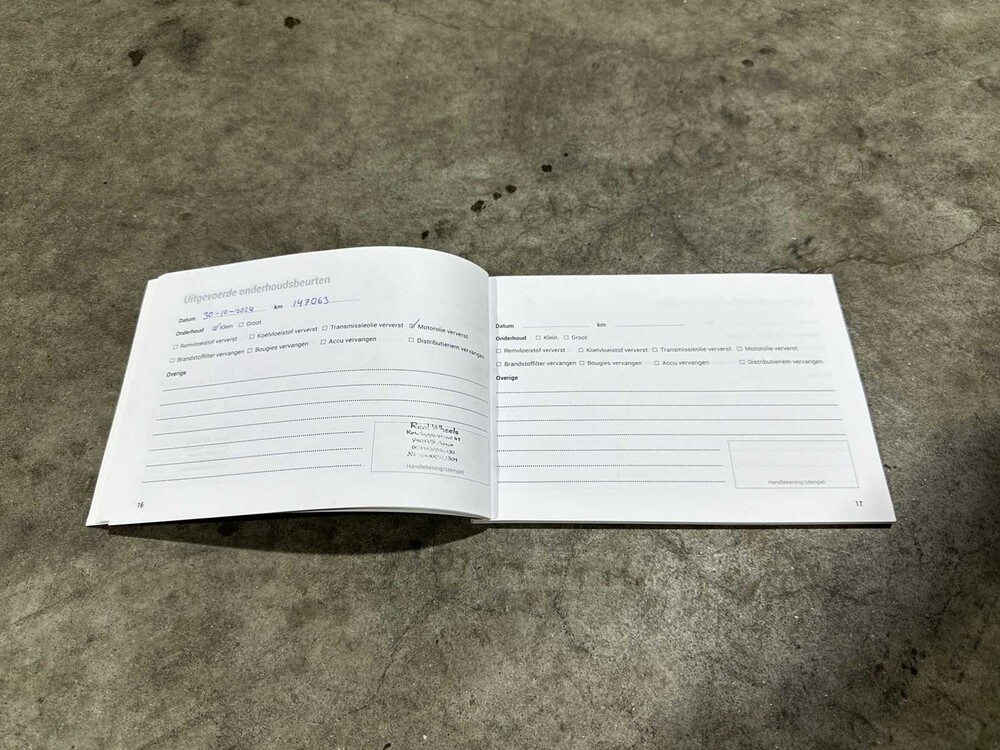 Uitgevoerde onderhoudsbeurten
Datum 30-10-2024 km 147063
Onderhoud ☑ Klein ☐ Groot
☐ Remvloeistof ververst ☐ Koelvloeistof ververst ☐ Transmissieolie ververst ☑ Motorolie ververst
☐ Brandstoffilter vervangen ☐ Bougies vervangen ☐ Accu vervangen ☐ Distributieriem vervangen
Overige
Real Wheels
Handtekening/stempel
16
Datum km
Onderhoud ☐ Klein ☐ Groot
☐ Remvloeistof ververst ☐ Koelvloeistof ververst ☐ Transmissieolie ververst ☐ Motorolie ververst
☐ Brandstoffilter vervangen ☐ Bougies vervangen ☐ Accu vervangen ☐ Distributieriem vervangen
Overige
Handtekening/stempel
17